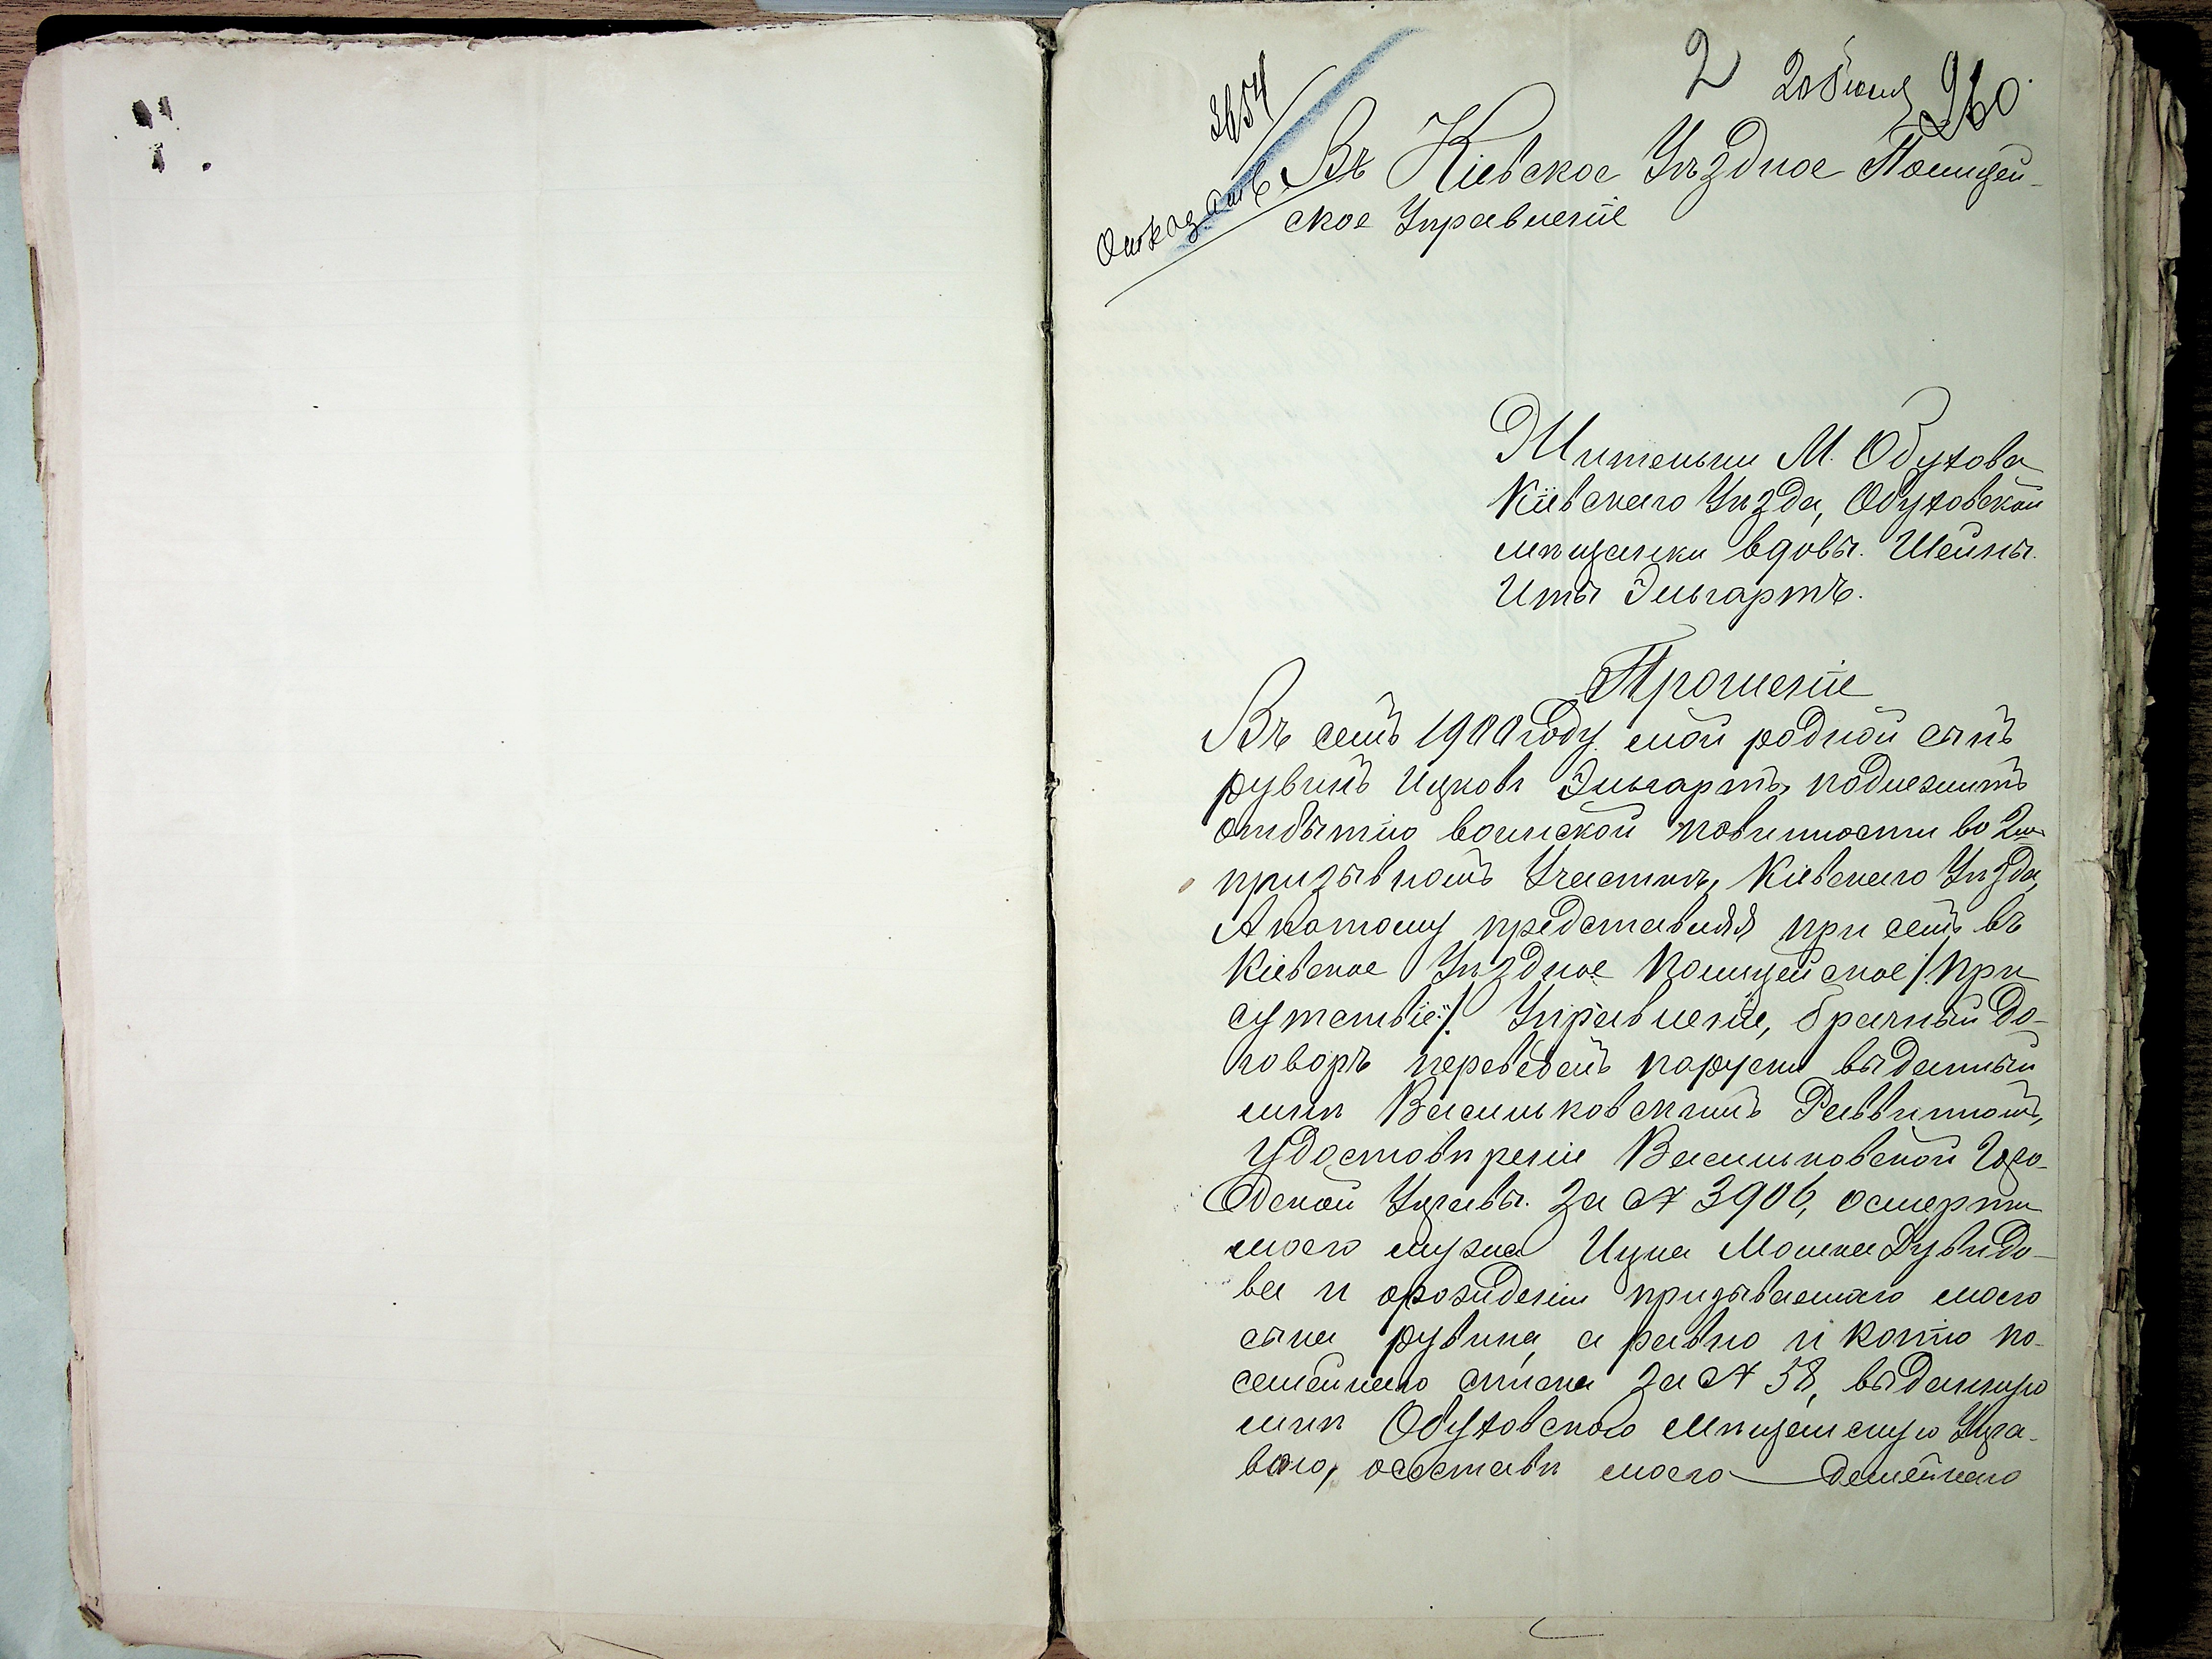 2 20 Юня 960
3654
Отказать
Въ Кіевское Уѣздное Полицей-
ское Управленіе
Жительки М. Обухова
Кіевскаго Уѣзда, Обуховской
мѣщанки вдовы Шейны
Иты Эльгартъ.
Прошеніе
Въ семъ 1900 году мой родной сынъ
рувинъ Ицковъ Эльгартъ, подлежитъ
отбытію воинской повинности во 2мъ
призывномъ Участкѣ, Кіевскаго Уѣзда,
А потому представляя при семъ въ
Кіевское Уѣздное Полицейское /:При
сутствіе:/ Управленіе, брачный до-
говоръ выданный
мнѣ Васильковскимъ Раввиномъ,
удостовѣреніе Васильковской Горо-
дской Управы за № 3906, осмерти
моего мужа Ицка Мошка Дувидо-
ва и орожденіи призываемаго моего
сына рувина, а равно и копію по-
семейнаго списка за № 58, выданную
мнѣ Обуховскою Мѣщанскую Упра-
вою, осоставѣ моего семейнаго